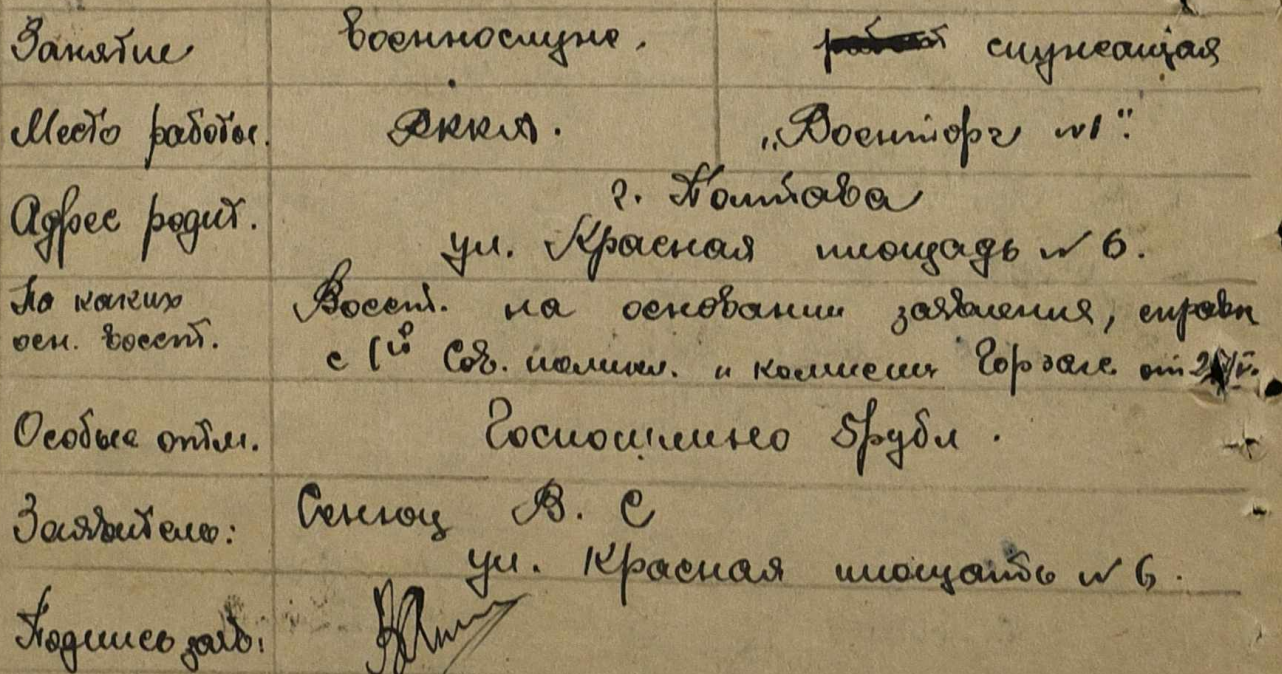 Занятие военнослуж. служащая
Место работы. РККА. „Военторг №1“.
Адрес родит. г. Полтава
ул. Красная площадь №6.
По каких Восст. на основании заявления, справк
осн. восст. с 1ой Сов. поликл. и комиссии Горзагс от
Особые отм. Госпошлино 5рубл.
Заявитель: Сенюц В. С
ул. Красная площадь №6.
Подпись заяв: